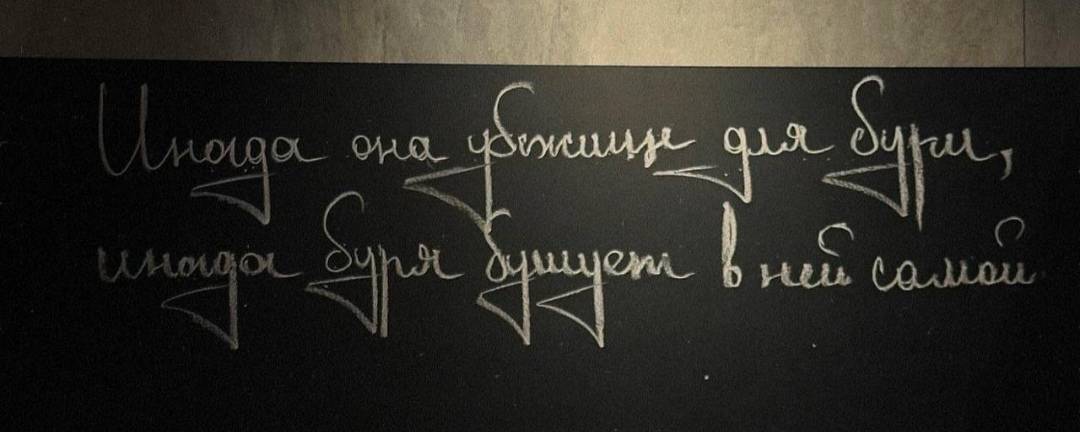 Иногда она убежище для бури,
иногда буря бушует в ней самой